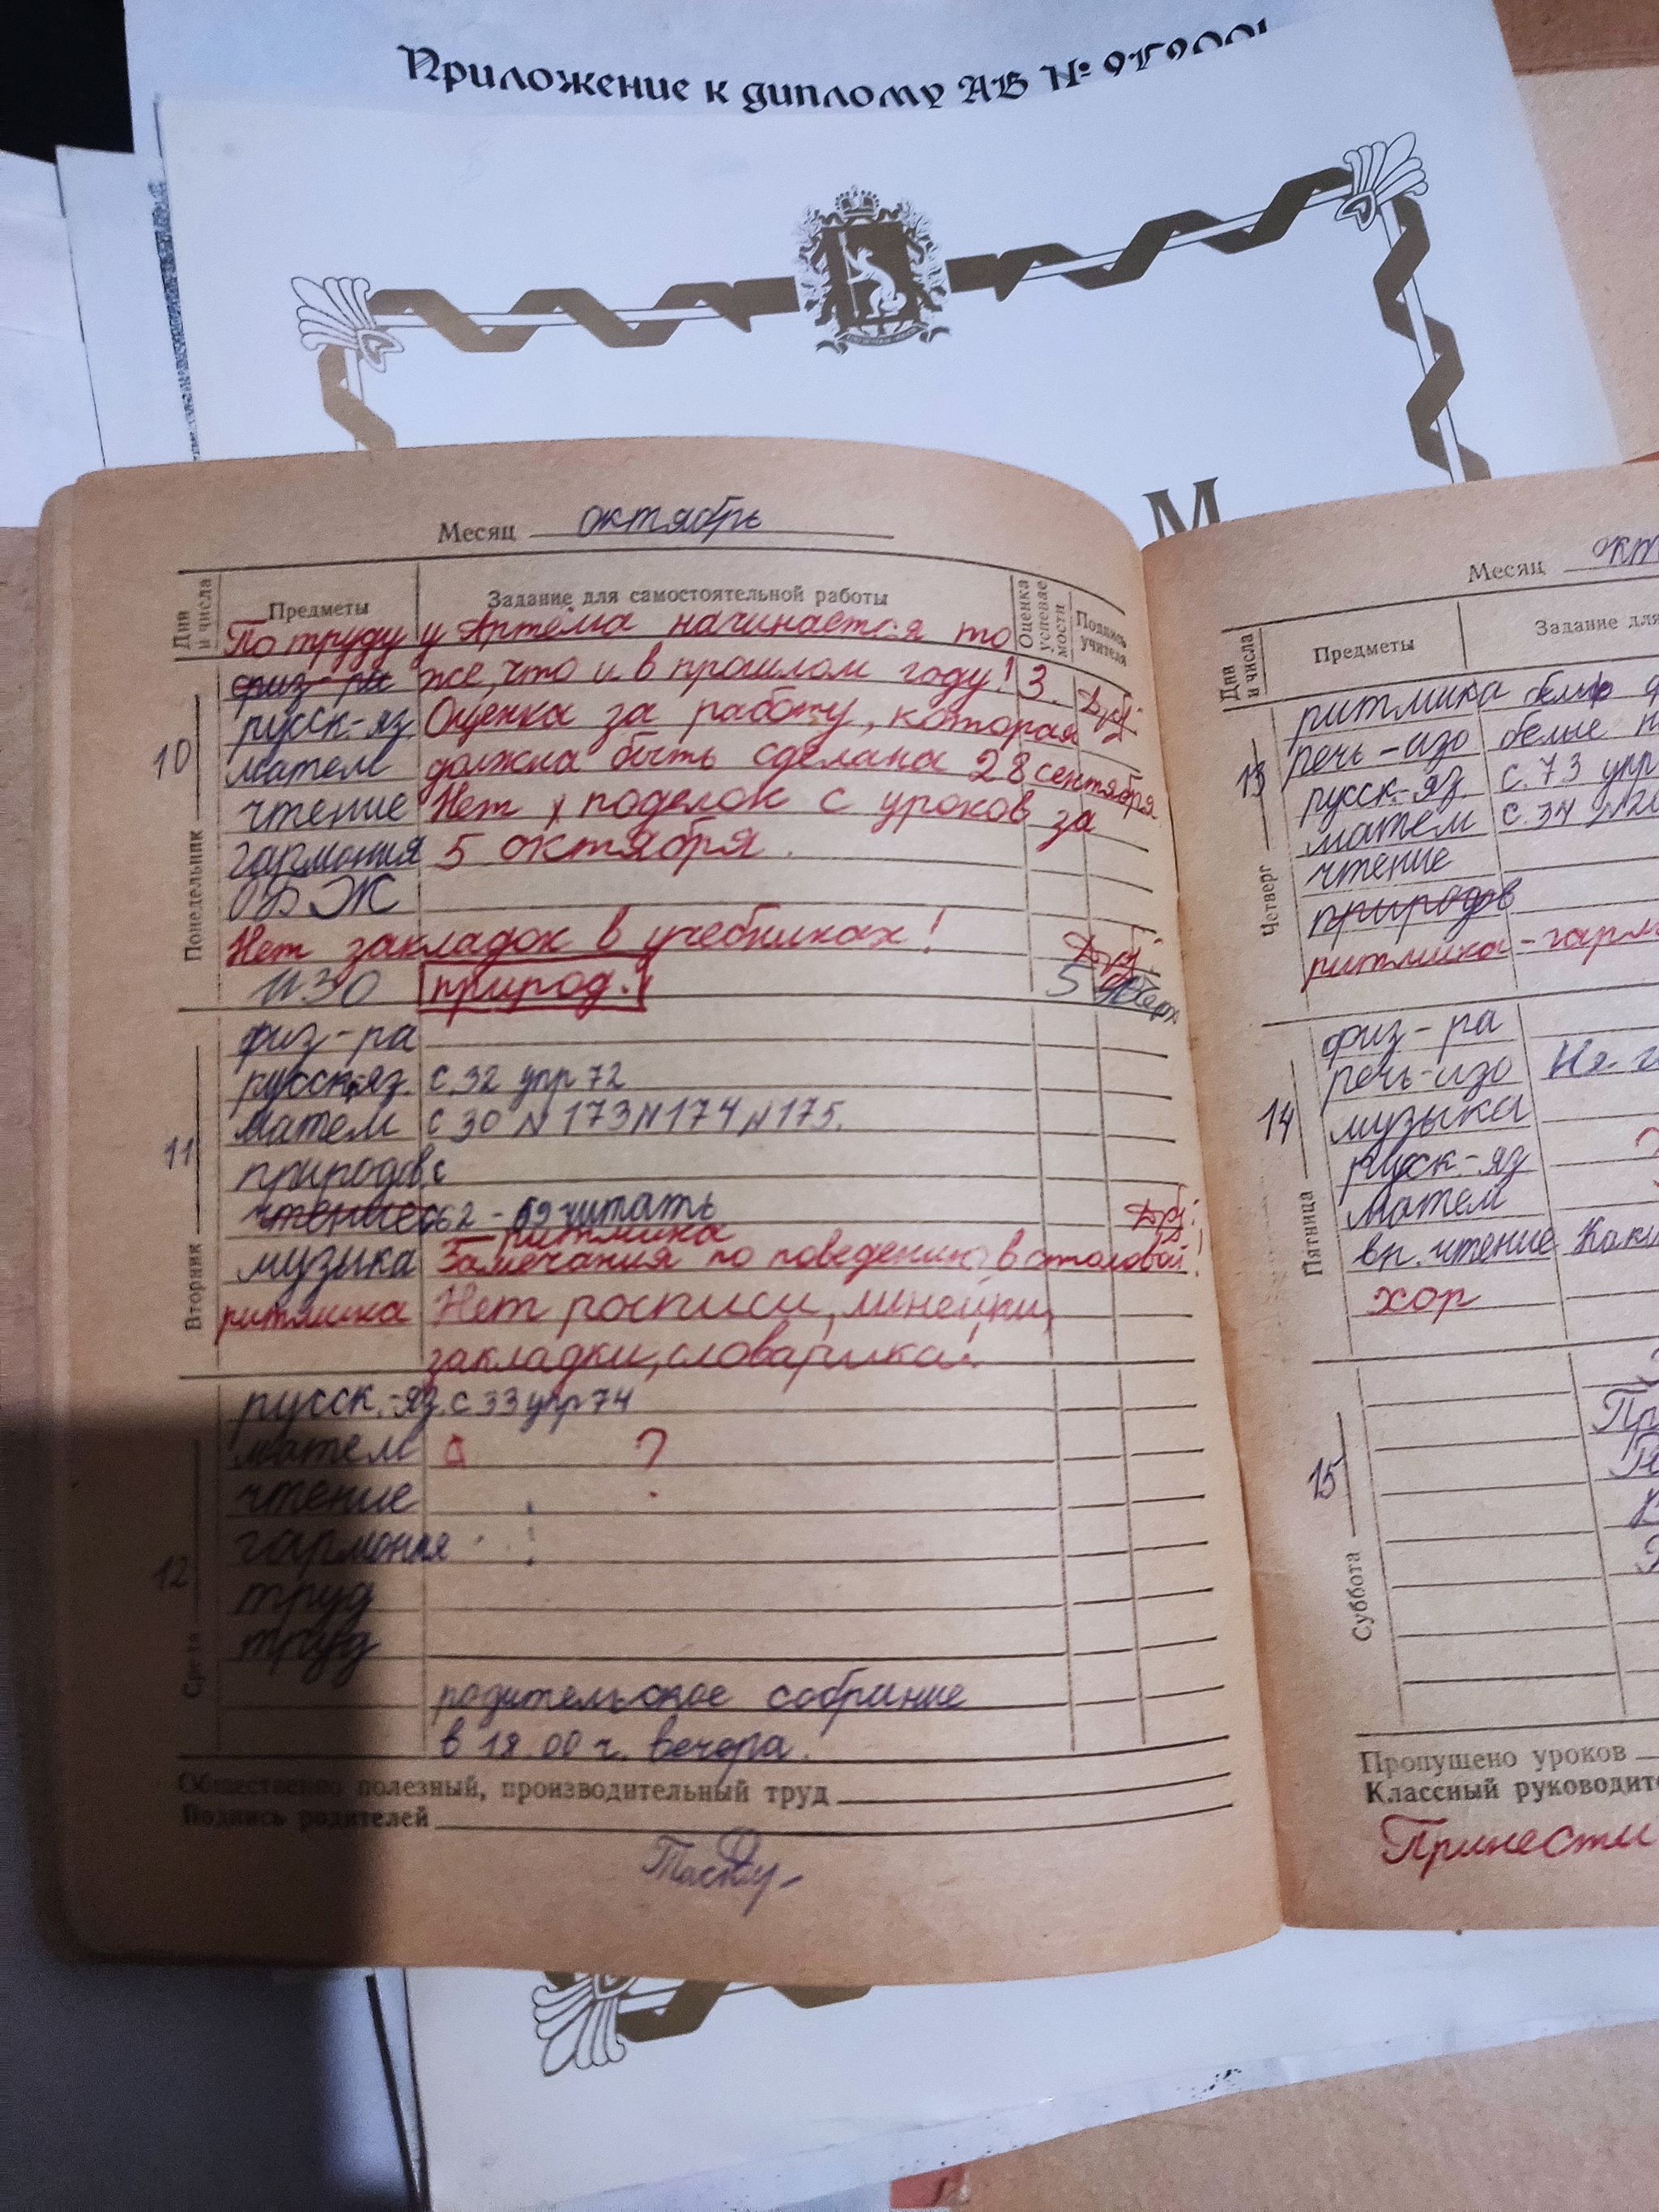 Приложение к диплому АВ №
М
Месяц октябрь
Дни и числа
Предметы
Задание для самостоятельной работы
Оценка успеваемости
Подпись учителя
По труду у Артёма начинается то
физ-ра же, что и в прошлом году! 3.
русск-яз Оценка за работу, которая
10
матем должна быть сделана 28 сентября.
чтение Нет поделок с уроков за
гармония 5 октября.
ОБЖ
Понедельник
Нет закладок в учебниках!
ИЗО природ. 5
физ-ра
русск-яз. с.32 упр 72
матем с 30 №173 №174 №175.
11
природов с
чтение с62-69 читать
ритмика
музыка Замечания по поведению в столовой!
Вторник
ритмика Нет росписи, линейки,
закладки, словарика!
русск.-яз. с 33 упр 74
матем ?
чтение
гармония
12
труд
труд
Среда
родительское собрание
в 18.00 ч. вечера.
Общественно полезный, производительный труд
Подпись родителей
Месяц окт
Дни и числа
Предметы
Задание для
ритмика
13
речь-изо белые
русск-яз. с.73 упр
матем с.34
чтение
Четверг
природов
ритмика-гарм
физ-ра
речь-изо
14
музыка
русск-яз
матем
Пятница
вн. чтение
хор
15
Суббота
Пропущено уроков
Классный руководит
Принести